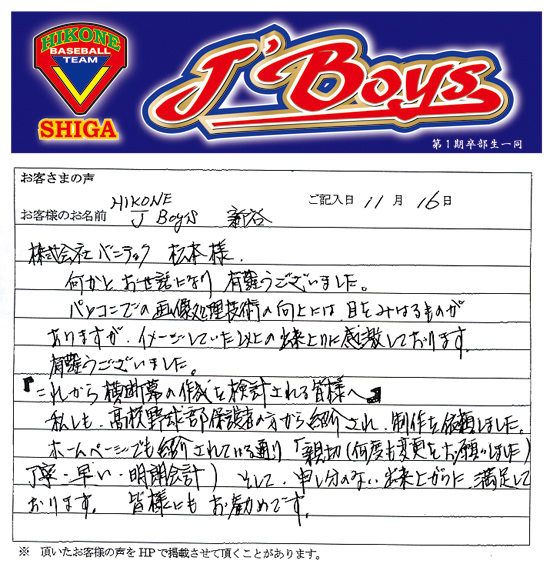 HIKONE
BASEBALL
TEAM
SHIGA
J'Boys
第1期卒部生一同
お客さまの声
ご記入日 11 月 16 日
お客様のお名前 HIKONE J Boys 新谷
株式会社バンテック 松本様.
何かと、お世話になり 有難うございました。
パソコンでの画像処理技術の向上には 目をみはるものが
ありますが、イメージしていた以上の出来上りに感激しております.
有難うございました。
『これから横断幕の作成を検討される皆様へ』
私しも、高校野球部保護者の方から紹介され、制作を依頼しました。
ホームページでも紹介されている通り「親切(何度も変更をお願いしました)
丁寧・早い・明朗会計」 そして、申し分のない出来上がりに、満足して
おります。 皆様にも お勧めです。
※ 頂いたお客様の声をHPで掲載させて頂くことがあります。